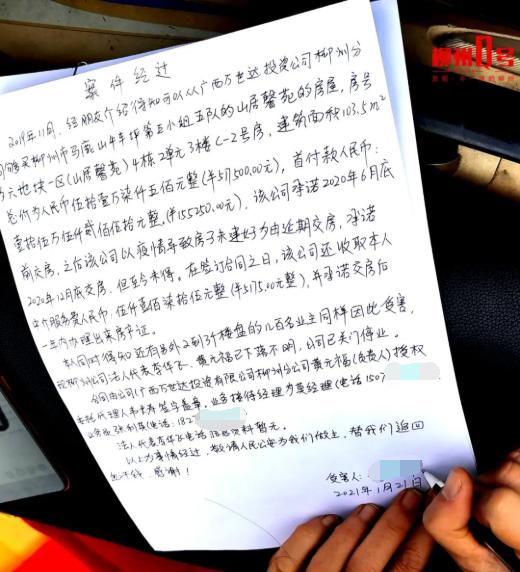 柳州1号
案件经过
2019年11月,经朋友介绍得知可以从广西万世达投资公司柳州分
司购买柳州市马鹿山牛车坪第五小组五队的山居馨苑的房屋,房号
为六地块一区(山居馨苑)4栋2单元3楼<-2号房,建筑面积103.5m²
总价为人民币伍拾壹万柒仟五佰元整(¥517500.00元),首付款人民币:
壹拾伍万伍仟贰佰伍拾元整(¥155250.00元).该公司承诺2020年6月底
前交房,之后该公司以疫情导致房子未建好为由延期交房,承诺
2020年12月底交房,但至今未得。在签订合同之日,该公司还收取本人
中介服务费人民币:伍仟壹佰柒拾伍元整(¥5175.00元整),并承诺交房后
一年内办理出来房产证。
本人同时得知还有另外2到3个楼盘的几百名业主同样因此受害,
现柳州公司法人代表李伟飞、黄元福已下落不明,公司已关门停业。
合同由公司(广西万世达投资有限公司柳州分公司黄元福(负责人)授权
委托代理人韦 签字盖章,业务接待经理为莫经理(电话1507
业务员张 (电话:182
法人代表李伟飞电话 资料暂无。
以上为事情经过,敬请人民公安为我们做主,替我们追回
血汗钱,感谢!
受害人:
2021年1月21日